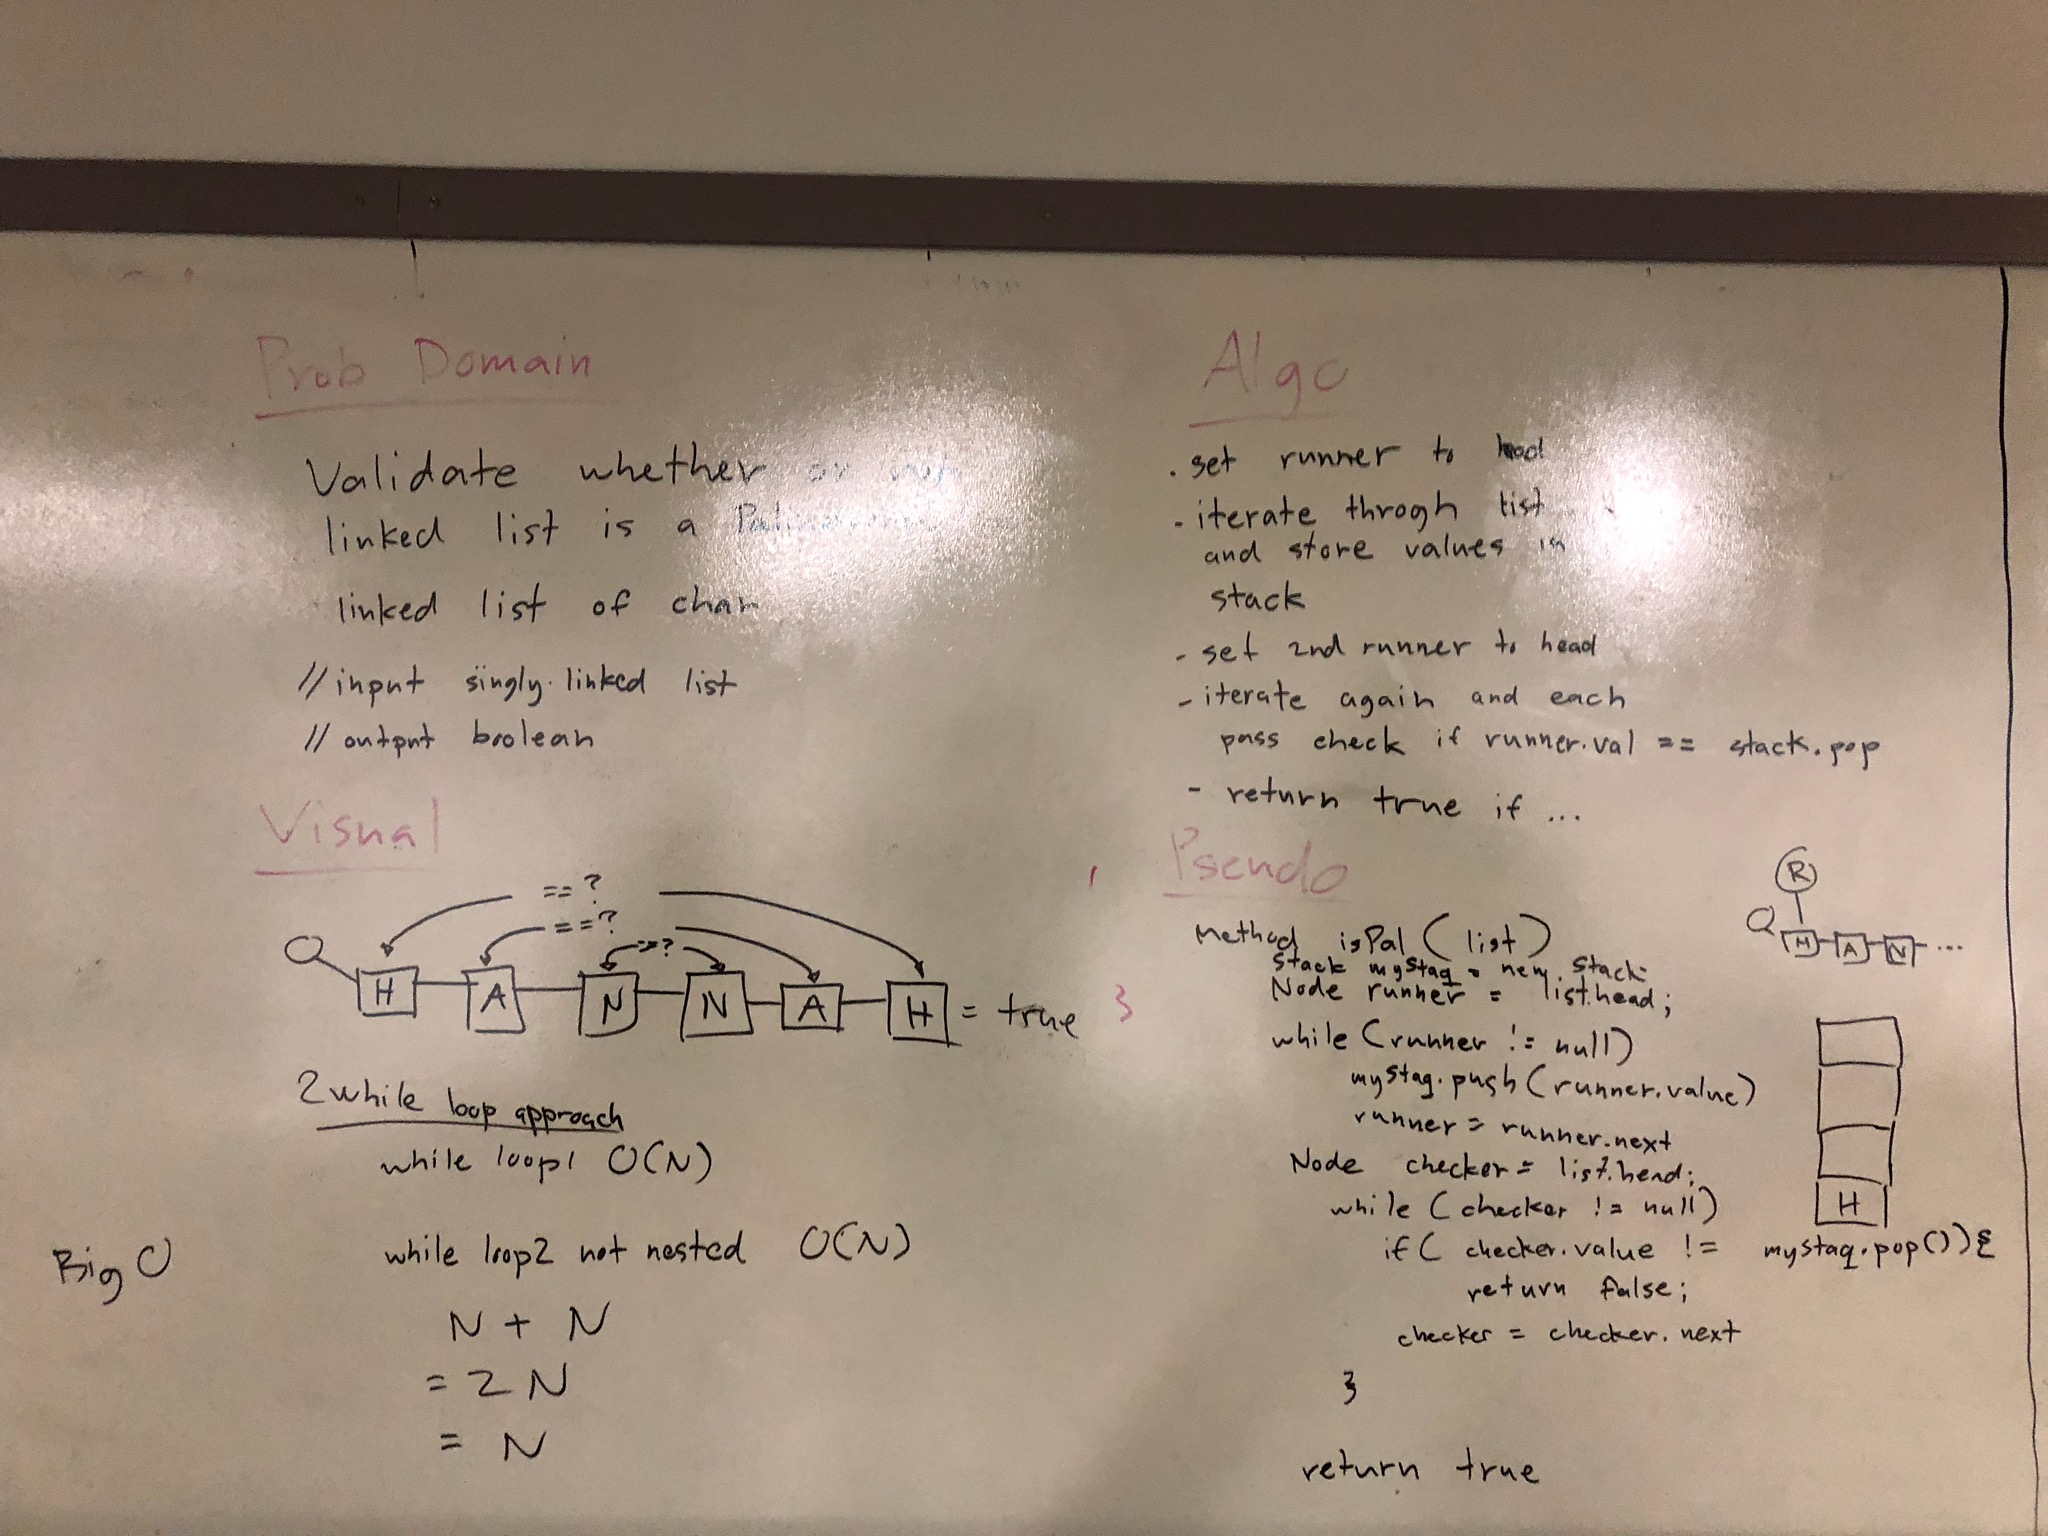 Prob Domain
Validate whether or not
linked list is a Palindrome
linked list of char
// input singly linked list
// output boolean
Visual
== ?
==?
==?
H A N N A H = true
2 while loop approach
while loop1 O(N)
while loop2 not nested O(N)
Big O
N + N
= 2N
= N
Algo
. set runner to head
- iterate throgh list
and store values in
stack
- set 2nd runner to head
- iterate again and each
pass check if runner.val == stack.pop
- return true if ...
Psendo
R
H A N ...
Method isPal (list)
Stack mystaq = new Stack
Node runner = list.head;
while (runner != null)
mystaq.push(runner.value)
runner = runner.next
Node checker = list.head;
while (checker != null)
H
if( checker.value != mystaq.pop()){
return false;
checker = checker.next
}
return true
}